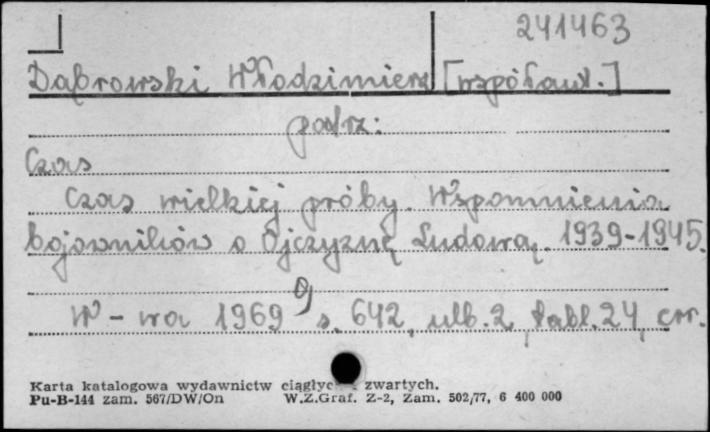 241463
Dąbrowski Włodzimierz [współaut.]
patrz:
Czas
Czas wielkiej próby. Wspomnienia
bojowników o Ojczyznę Ludową. 1939-1945.
W-wa 1969 s. 642, nlb. 2, tabl. 24, err.
Karta katalogowa wydawnictw ciągłyc zwartych.
Pu-B-144 zam. 567/DW/On W.Z.Graf. Z-2, Zam. 502/77, 6 400 000